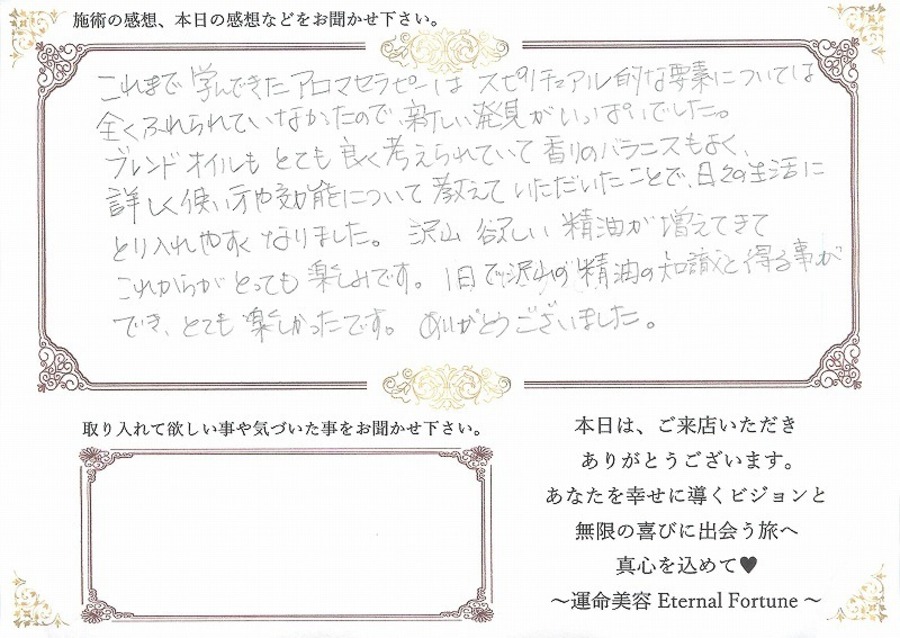 施術の感想、本日の感想などをお聞かせ下さい。
これまで学んできたアロマセラピーは スピリチュアル的な要素については
全くふれられていなかったので、新しい発見がいっぱいでした。
ブレンドオイルも とても良く考えられていて 香りのバランスもよく、
詳しく使い方や効能について教えていただいたことで、日々の生活に
とり入れやすくなりました。 沢山 欲しい 精油が増えてきて
これからがとっても楽しみです。 1日で沢山の精油の知識を得る事が
でき、とても楽しかったです。 ありがとうございました。
取り入れて欲しい事や気づいた事をお聞かせ下さい。
本日は、ご来店いただき
ありがとうございます。
あなたを幸せに導くビジョンと
無限の喜びに出会う旅へ
真心を込めて♥
～運命美容 Eternal Fortune ～